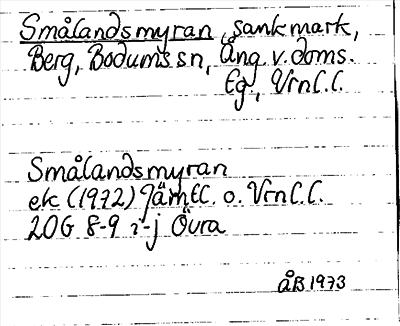 Smålandsmyran, sankmark,
Berg, Bodums sn, Ång. v. doms.
Eg., Vrnl.l.
Smålandsmyran
ek (1972) Jämtl. o. Vrnl.l.
20G 8-9 i-j Övra
ÅB 1973